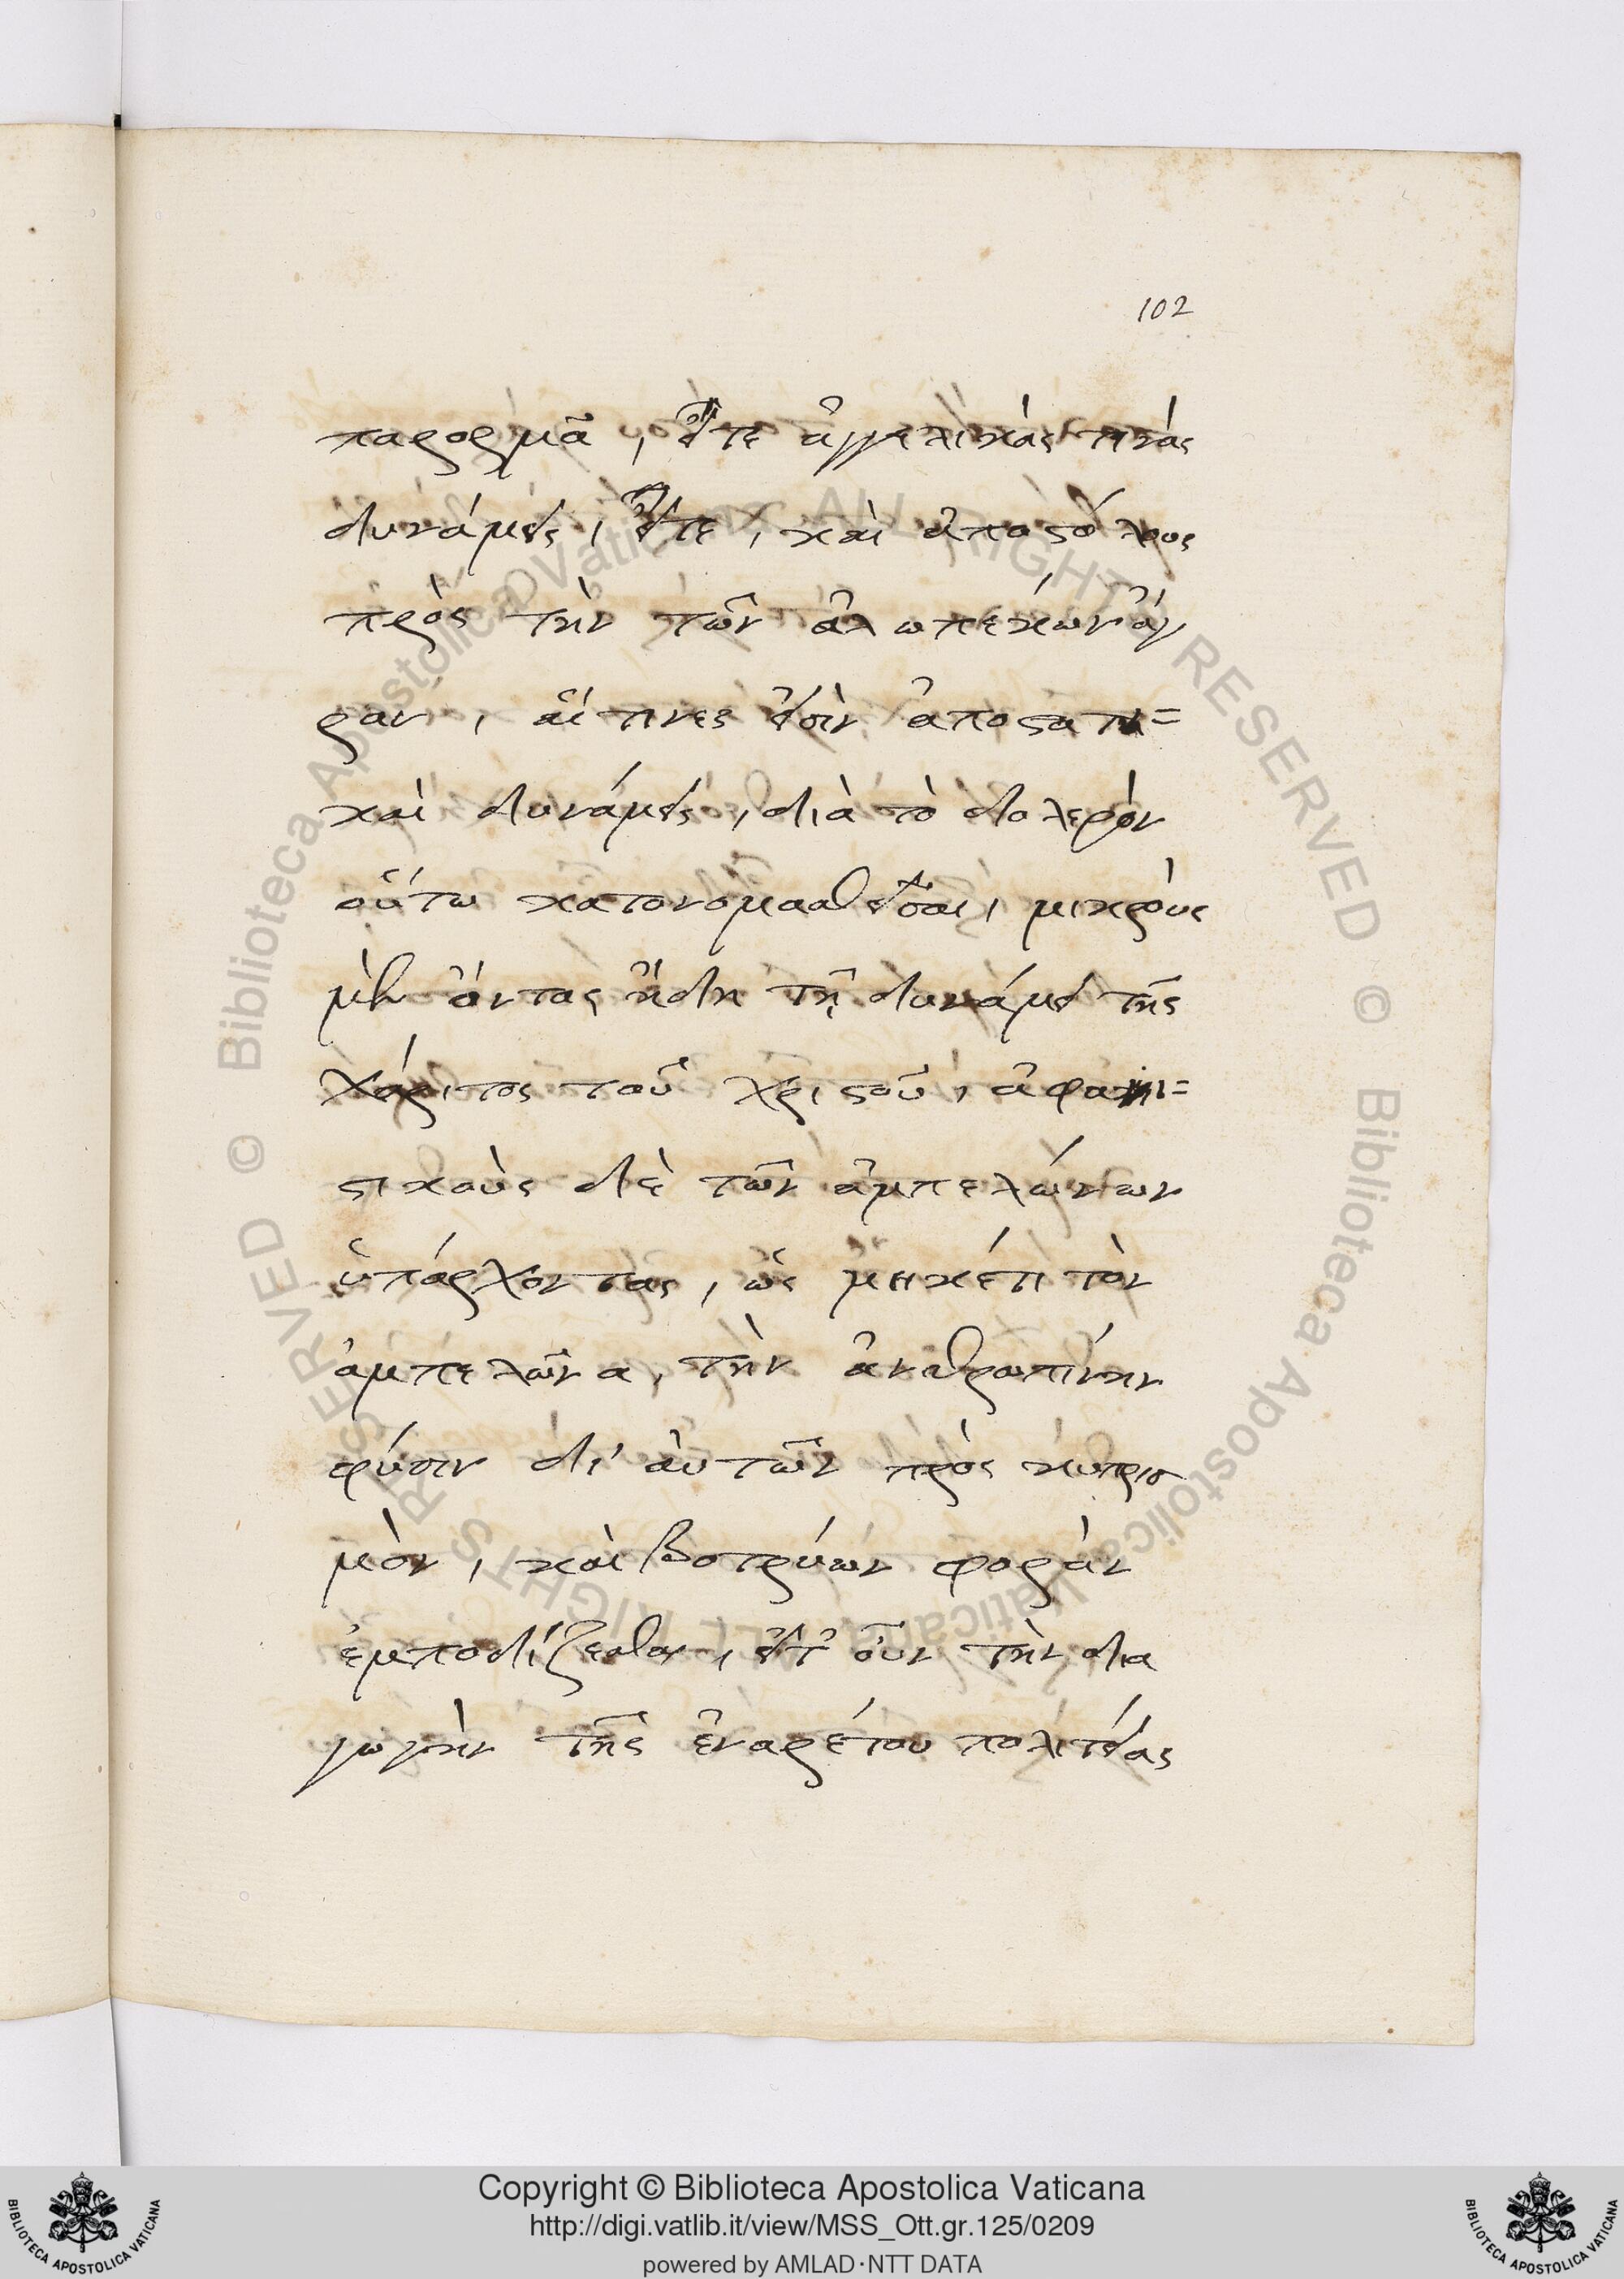 102
παρορμᾶ, εἴτε ἀγγελικάς τινὰς
δυνάμεις, εἴτε, καὶ ἀποστόλους
πρὸς τὴν τῶν ἀλωπεκῶν ἄγ
ραν, αἵ τινες εἰσὶν ἀποστατι=
καὶ δυνάμεις, διὰ τὸ δολερὸν
οὕτω κατονομασθεῖσαι, μικροὺς
μὲν ὄντας ἤδη τῇ δυνάμει τῆς
χάριτος τοῦ χριστοῦ, ἀφανι=
στικοὺς δὲ τῶν ἀμπελώνων
ὑπάρχοντας, ὡς μηκέτι τὸν
ἀμπελῶνα, τὴν ἀνθρωπίνην
φύσιν δι' αὐτῶν πρὸς κυπρισ
μὸν, καὶ βοτρύων φορὰν
ἐμποδίζεσθαι, εἴτ' οὖν τὴν δια
γωγὴν τῆς ἐναρέτου πολιτείας
© Biblioteca Apostolica Vaticana ALL RIGHTS RESERVED
© Biblioteca Apostolica Vaticana ALL RIGHTS RESERVED
BIBLIOTECA APOSTOLICA VATICANA
Copyright © Biblioteca Apostolica Vaticana
http://digi.vatlib.it/view/MSS_Ott.gr.125/0209
powered by AMLAD·NTT DATA
BIBLIOTECA APOSTOLICA VATICANA